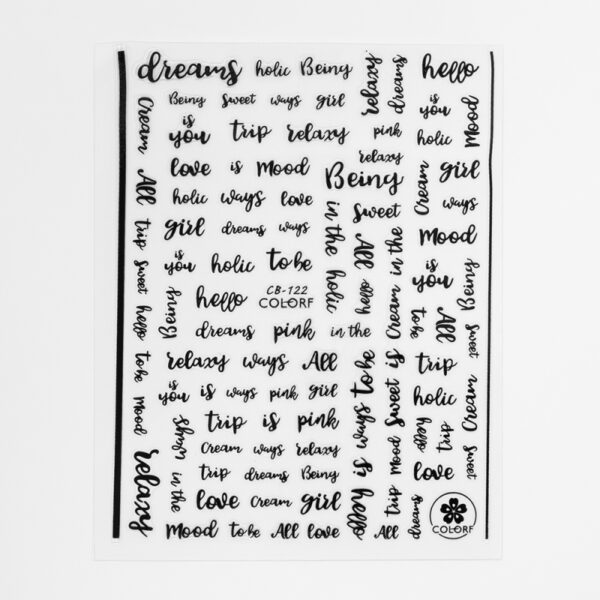 dreams holic Being
relaxy
dreams
hello
Being sweet ways girl
is
you
Mood
Cream
is
you
trip relaxy pink
holic
relaxy
love is Mood
Being
Cream
girl
All
holic ways love
sweet
ways
girl dreams ways
in the
All
Cream in the
Mood
trip
is
you
holic to be
holic
hello
is
you
Being
sweet
Being
hello
CB-122
COLORF
to be
All
hello
dreams pink in the
sweet
relaxy ways All
is ways to be
Sweet is
trip
to be
is
you
is ways pink girl
holic
Cream
Mood
trip is pink
ways
Mood
hello
trip
Cream ways relaxy
sweet
relaxy
in the
trip dreams Being
love
love Cream girl
hello
trip
dreams
COLORF
Mood to be All love All